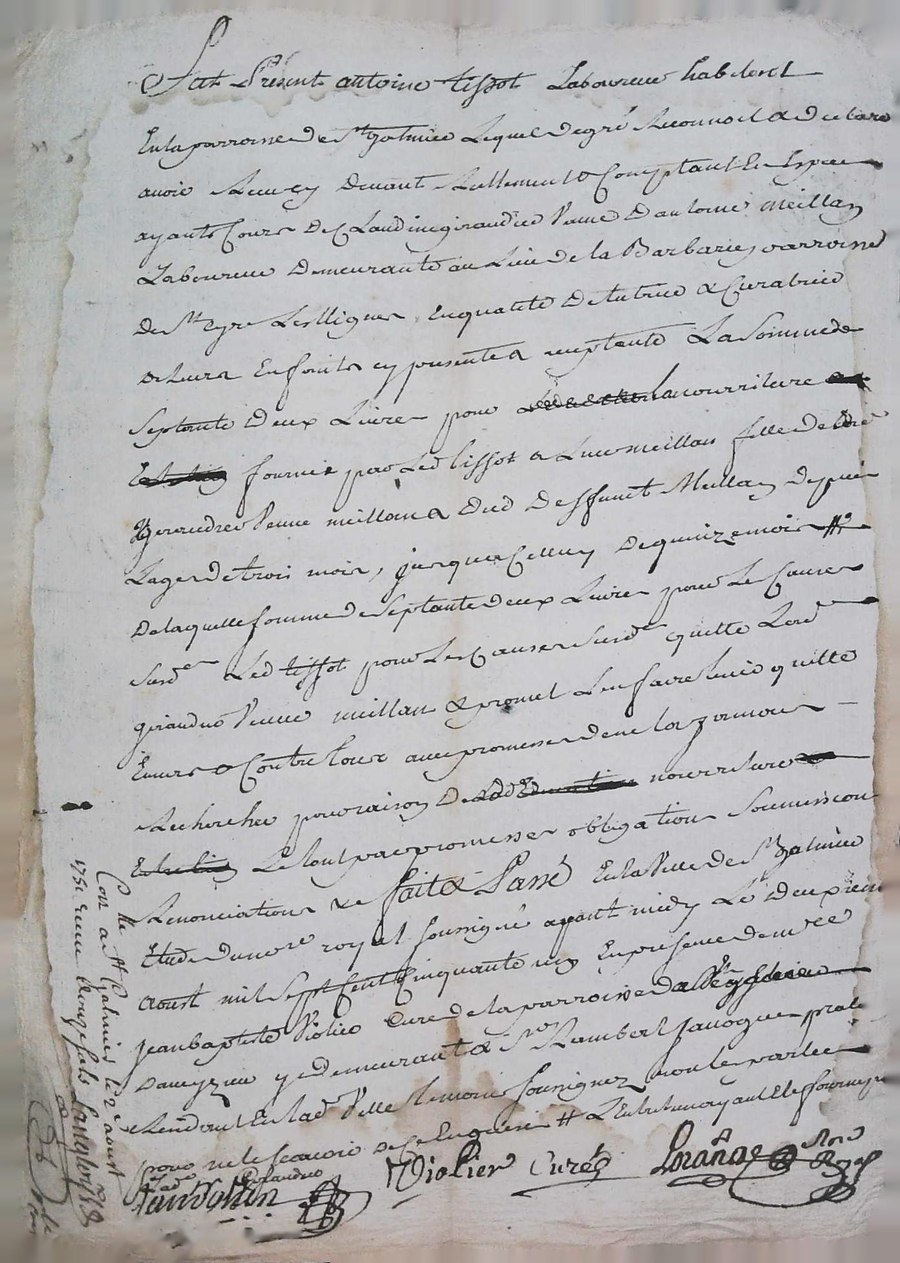 Fut Présent antoine tissot Laboureur habitant
En la parroisse de St galmier Lequel de gré Reconnoit & declare
avoir Receu cy devant Reellement & Comptant En Espece
ayants Cours de Claudine giraudier Veuve D'antoine meillan
Laboureur Demeurante au Lieu de la Barbarie parroisse
De St Cyr Les Vignes En qualité De tutrice & Curatrice
de leurs Enfants cy presente & acceptante La Somme de
Septante Deux Livres pour la nourriture
fournie par Led tissot a meillan fille de lad
Giraudier Veuve meillan & dud Deffunt Meillan Depuis
Lage de trois mois, jusques a Celluy De quinze mois #
De laquelle somme de Septante deux Livres pour Les Causes
Susd Led tissot pour Les Causes Susd quitte Lad
giraudier Veuve meillan & promet L'en faire tenir quitte
Envers & Contre tous avec promesse de ne Luy en jamais
Rechercher pour raison De nourriture
Le tout par promesses obligations Soumissions
Renonciations & fait & Passé En la Ville de St galmier
Etude du nore royal soussigné avant midy Le Deuxieme
aoust mil Sept Cent Cinquante un En presence de mre
jean baptiste Violier Curé de la parroisse
D'aveyzieu y demeurant & Sr Rambert
Residant En lad Ville temoins soussignez non les parties
pour ne le scavoir De Ce Enquises # L'entretien ayant Ete fourny
Violier Curé
Conlle a St Galmier le 2 aoust
1751 receu douze sols Langlois